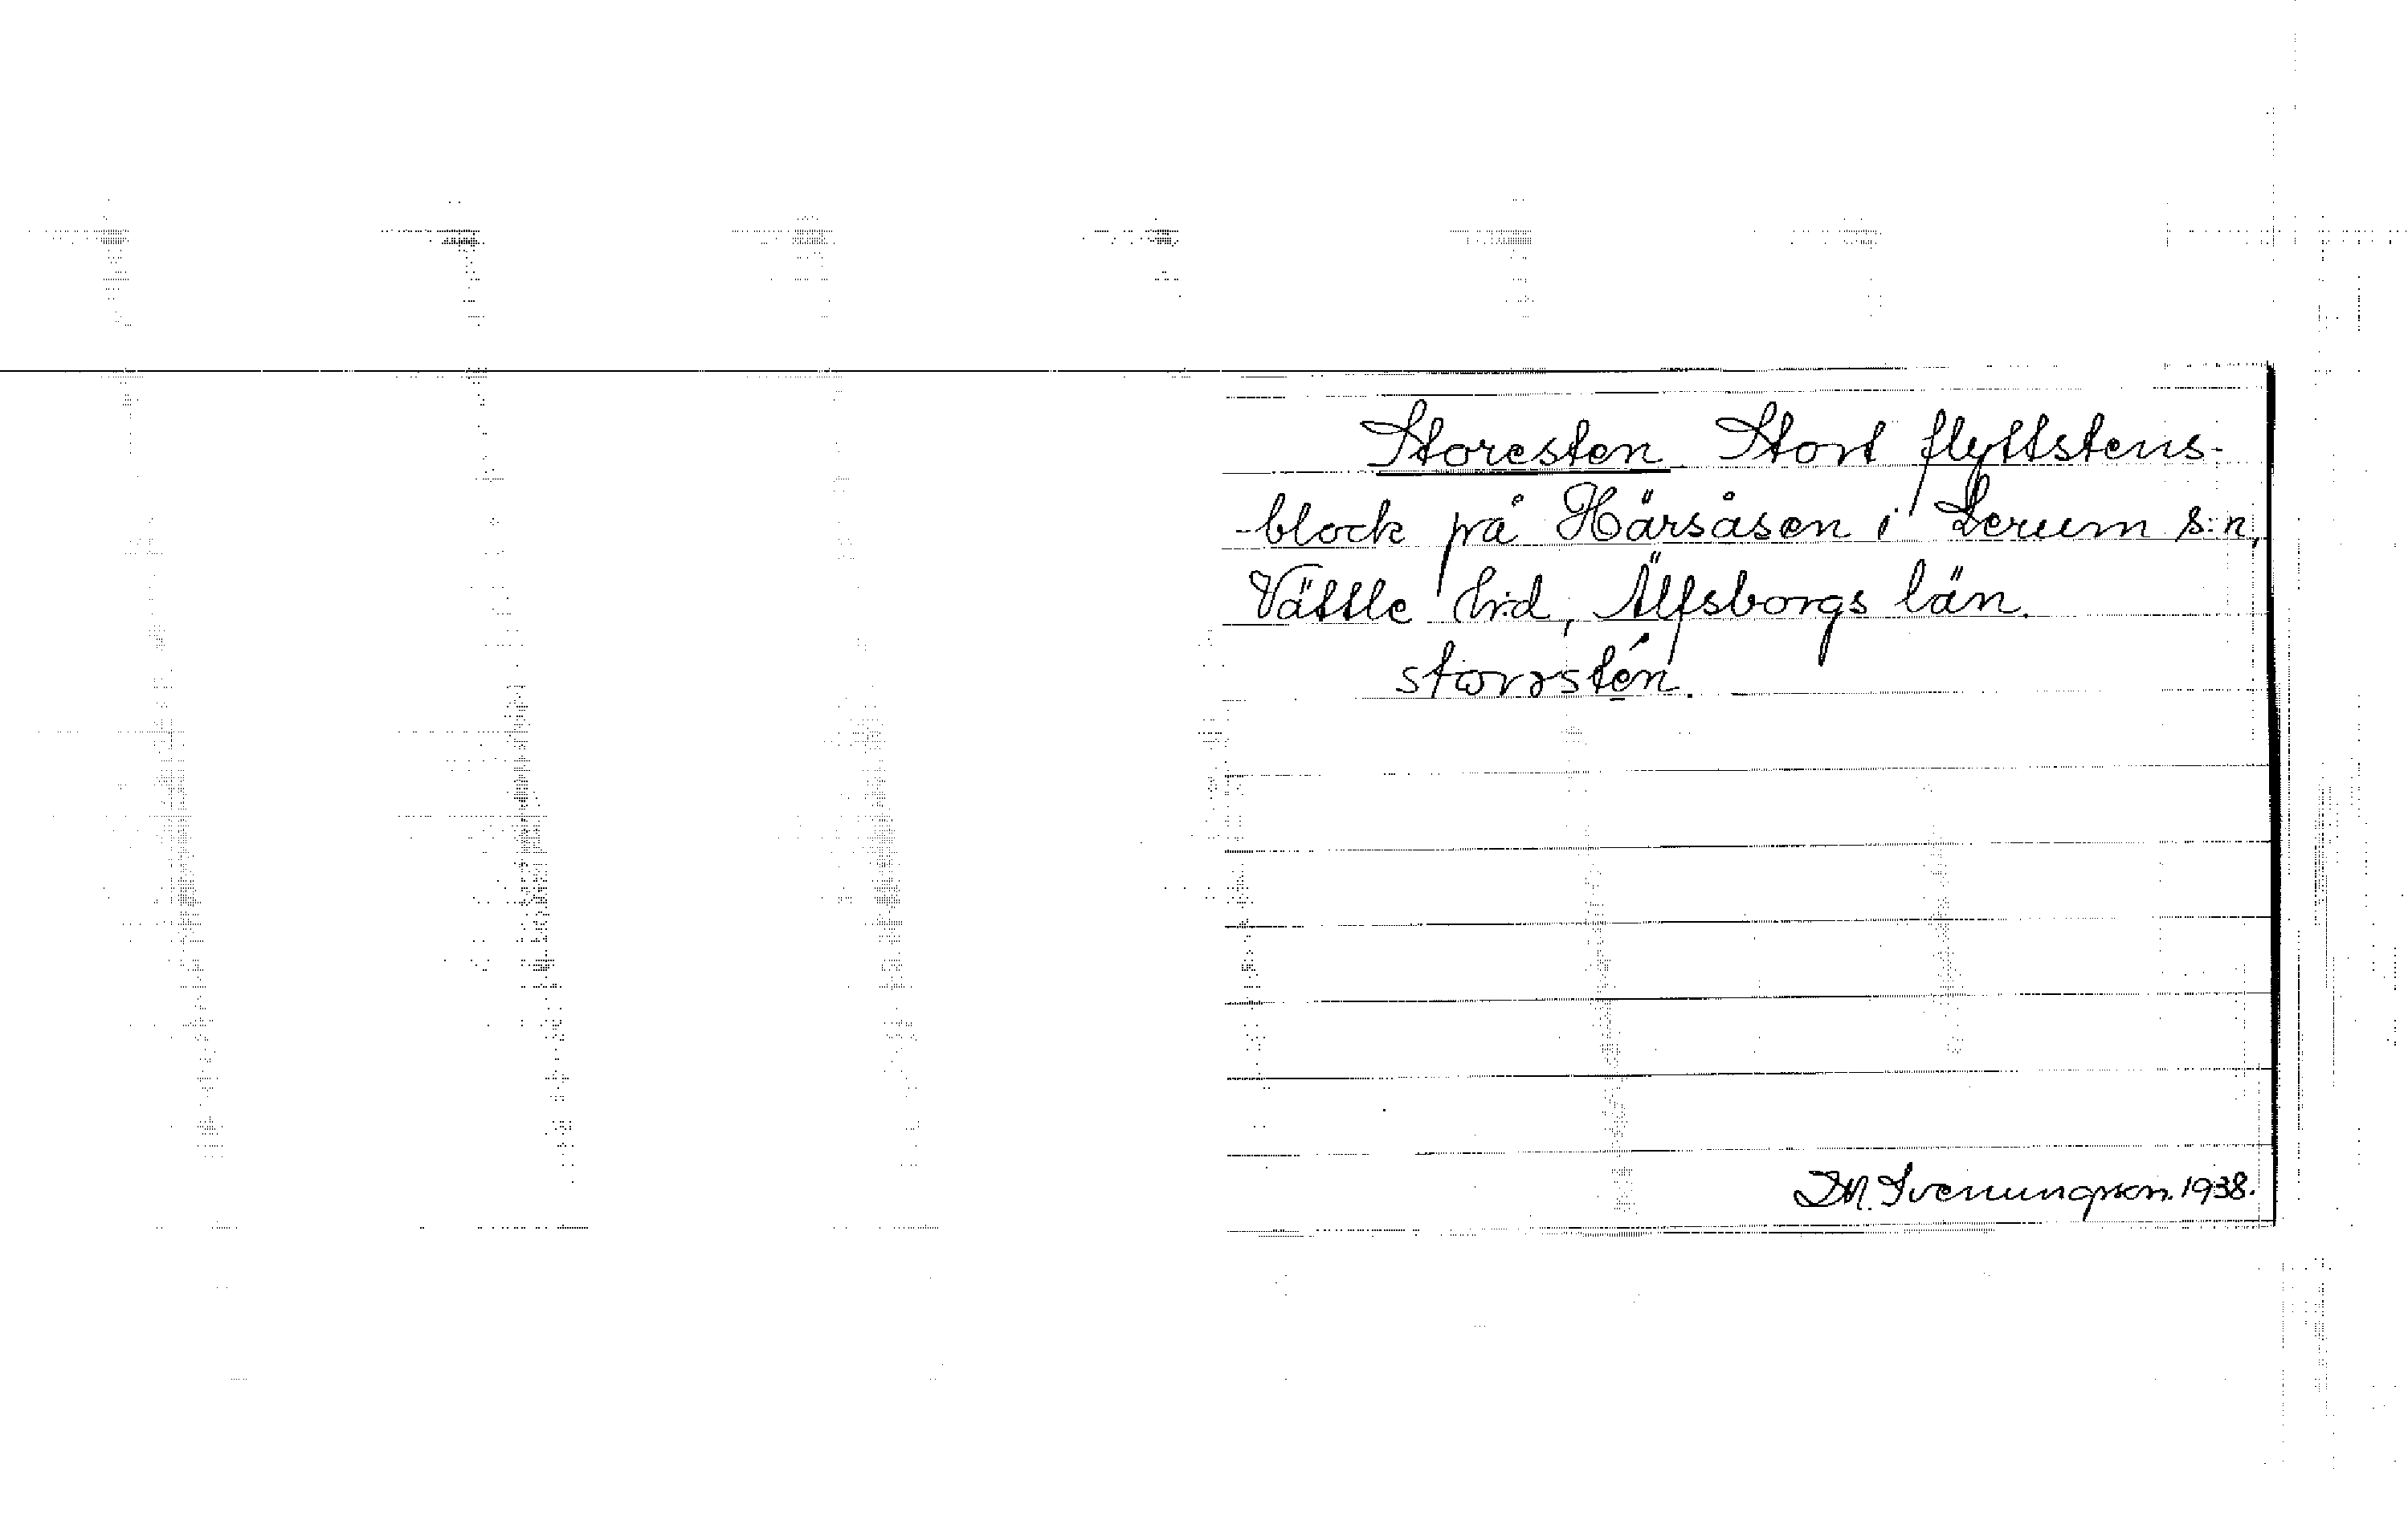 Storesten Stort flyttstens-
-block på Härsåsen i Lerum s:n,
Vättle hrd, Älfsborgs län.
D.M. Svenungsson. 1938.